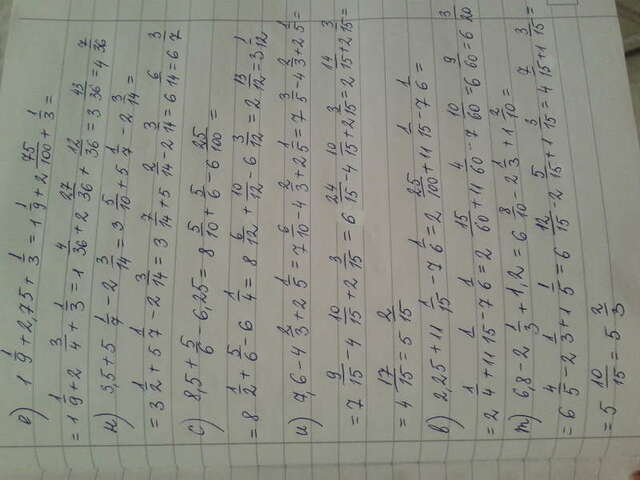 е) 1 1/9 + 2,75 + 1/3 = 1 1/9 + 2 75/100 + 1/3 =
= 1 1/9 + 2 3/4 + 1/3 = 1 4/36 + 2 27/36 + 12/36 = 3 43/36 = 4 7/36
н) 3,5 + 5 1/7 - 2 3/14 = 3 5/10 + 5 1/7 - 2 3/14 =
= 3 1/2 + 5 1/7 - 2 3/14 = 3 7/14 + 5 2/14 - 2 3/14 = 6 6/14 = 6 3/7
с) 8,5 + 5/6 - 6,25 = 8 5/10 + 5/6 - 6 25/100 =
= 8 1/2 + 5/6 - 6 1/4 = 8 6/12 + 10/12 - 6 3/12 = 2 13/12 = 3 1/12
и) 7,6 - 4 2/3 + 2 1/5 = 7 6/10 - 4 2/3 + 2 1/5 = 7 3/5 - 4 2/3 + 2 1/5 =
= 7 9/15 - 4 10/15 + 2 3/15 = 6 24/15 - 4 10/15 + 2 3/15 = 2 14/15 + 2 3/15 =
= 4 17/15 = 5 2/15
в) 2,25 + 11 1/15 - 7 1/6 = 2 25/100 + 11 1/15 - 7 1/6 =
= 2 1/4 + 11 1/15 - 7 1/6 = 2 15/60 + 11 4/60 - 7 10/60 = 6 9/60 = 6 3/20
т) 6,8 - 2 1/3 + 1,2 = 6 8/10 - 2 1/3 + 1 2/10 =
= 6 4/5 - 2 1/3 + 1 1/5 = 6 12/15 - 2 5/15 + 1 3/15 = 4 7/15 + 1 3/15 =
= 5 10/15 = 5 2/3